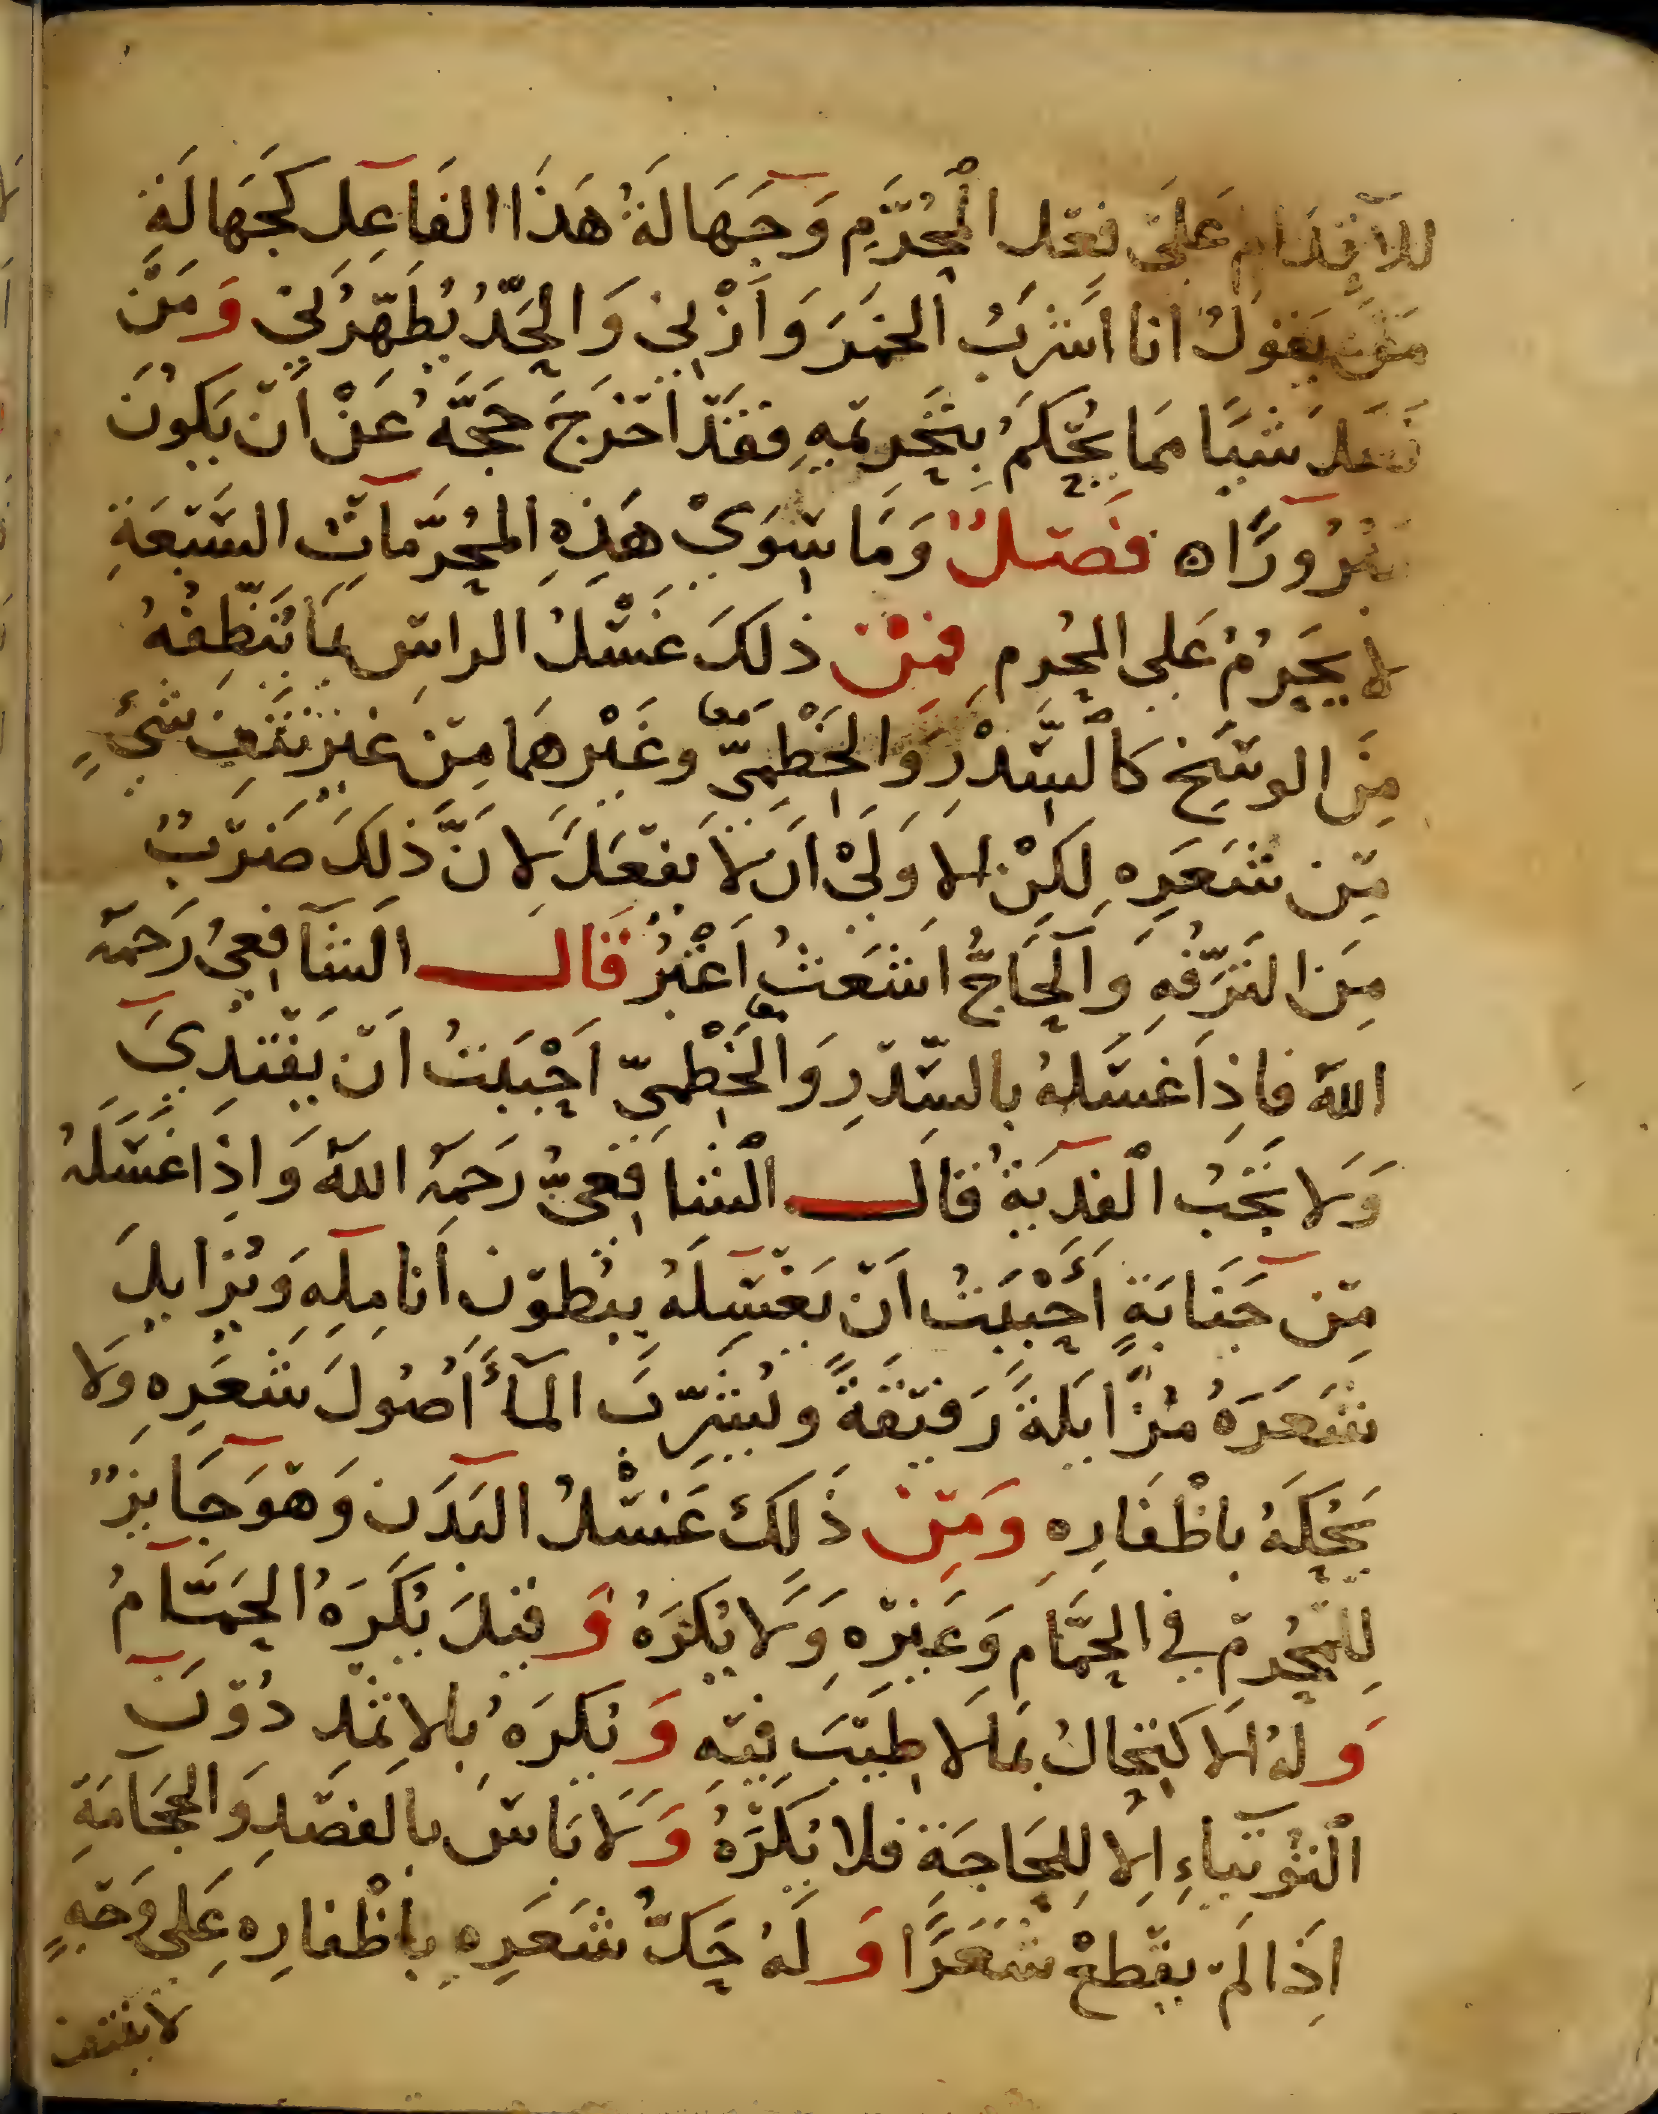 للاقدام عَلىَ فِعْل الْمُحَرَّمِ وَجَهَالَةُ هَذَا الفَاعِلِ كَجَهَالَةِ
مَنْ يَقُولُ انا اَشرَبُ الخمَرَ وَاَزْنِي وَالحَدُّ يُطَهِّرُنيِ وَمَنْ
فَعَلَ شيًا مما يُحْكَمُ بِتَحْرِيمهِ فقَدْ اَخْرَجَ حَجَّهُ عَنْ اَنْ يَكُونَ
مَبْرُورًا ه فَصْلٌ وَمَا سِوَيْ هَذِهِ المُحَرَّمَاتِ السَّبْعَةِ
لا يَحرُمُ عَلى المُحرِم فَمِنْ ذلكَ غَسْلُ الراسِ بمَا يُنَظِّفهُ
مِنَ الوسَخِ كَالْسِّدْرِ وَالخَطْمِيّ معا وغَيْرِهمَا مِنْ غيرِ نَتْفِ شَيْءٍ
مِنْ شَعَرِهِ لكِنْ الاَوَليْ اَنْ لاَ يَفْعَلَ لاِنَّ ذلكَ ضَرْبٌ
مِنَ التَرَفُّهِ وَالحَاجُّ اشعَثُ اَغْبَرُ قَالَ الَشَافِعيُ رَحمَهُ
اللهُ فاذِاَ غسَلهُ بالسِّدْرِ وَالْخَطْمِيّ معا اَحْبَبتُ اَنْ يَفْتَدِيَ
وَلا تجَبُ الْفِدْيَةُ قالَ الْشافِعيُّ رَحمَهُ اللهُ وَاِذَا غَسَلَهُ
مِنْ جَنَابَةٍ أَحْبَبتُ اَنْ يَغْسِلَهُ ببُطوْن اَنامِلِهِ وَيُزَايلَ
شَعَرَهُ مُزَايَلةً رَفيْقَةً ويُشَرِّبَ المَآءَ اُصُولَ شَعَرِهِ وَلا
يَحُكَّهُ باَظْفَارِهِ وَمِنْ ذَلكَ غَسْلُ البَدَن وَهْوَ جَايزٌ
لِلْمُحْرِمْ في الحَمَّام وَغَيْرِهِ وَلا يُكْرَهُ وَقيلَ يُكْرَهُ الحَمَّامُ
وَلهُ الاَكتِحَالُ بمَا لا طِيْبَ فيْهِ وَيُكْرَهُ بالاِثْمَدِ دُوْنَ
الْتُوتِيَاءِ اِلاَ لِلحَاجَة فلا يُكْرَهُ وَلا بَاسَ بالفَصْدِ وَالحَجَامَةِ
اِذَا لَمْ يقْطَعْ شَعَرًا وَلَهُ حَكُّ شَعَرِهِ باَظْفارِهِ عَلى وَجْهٍ
لا ينتف